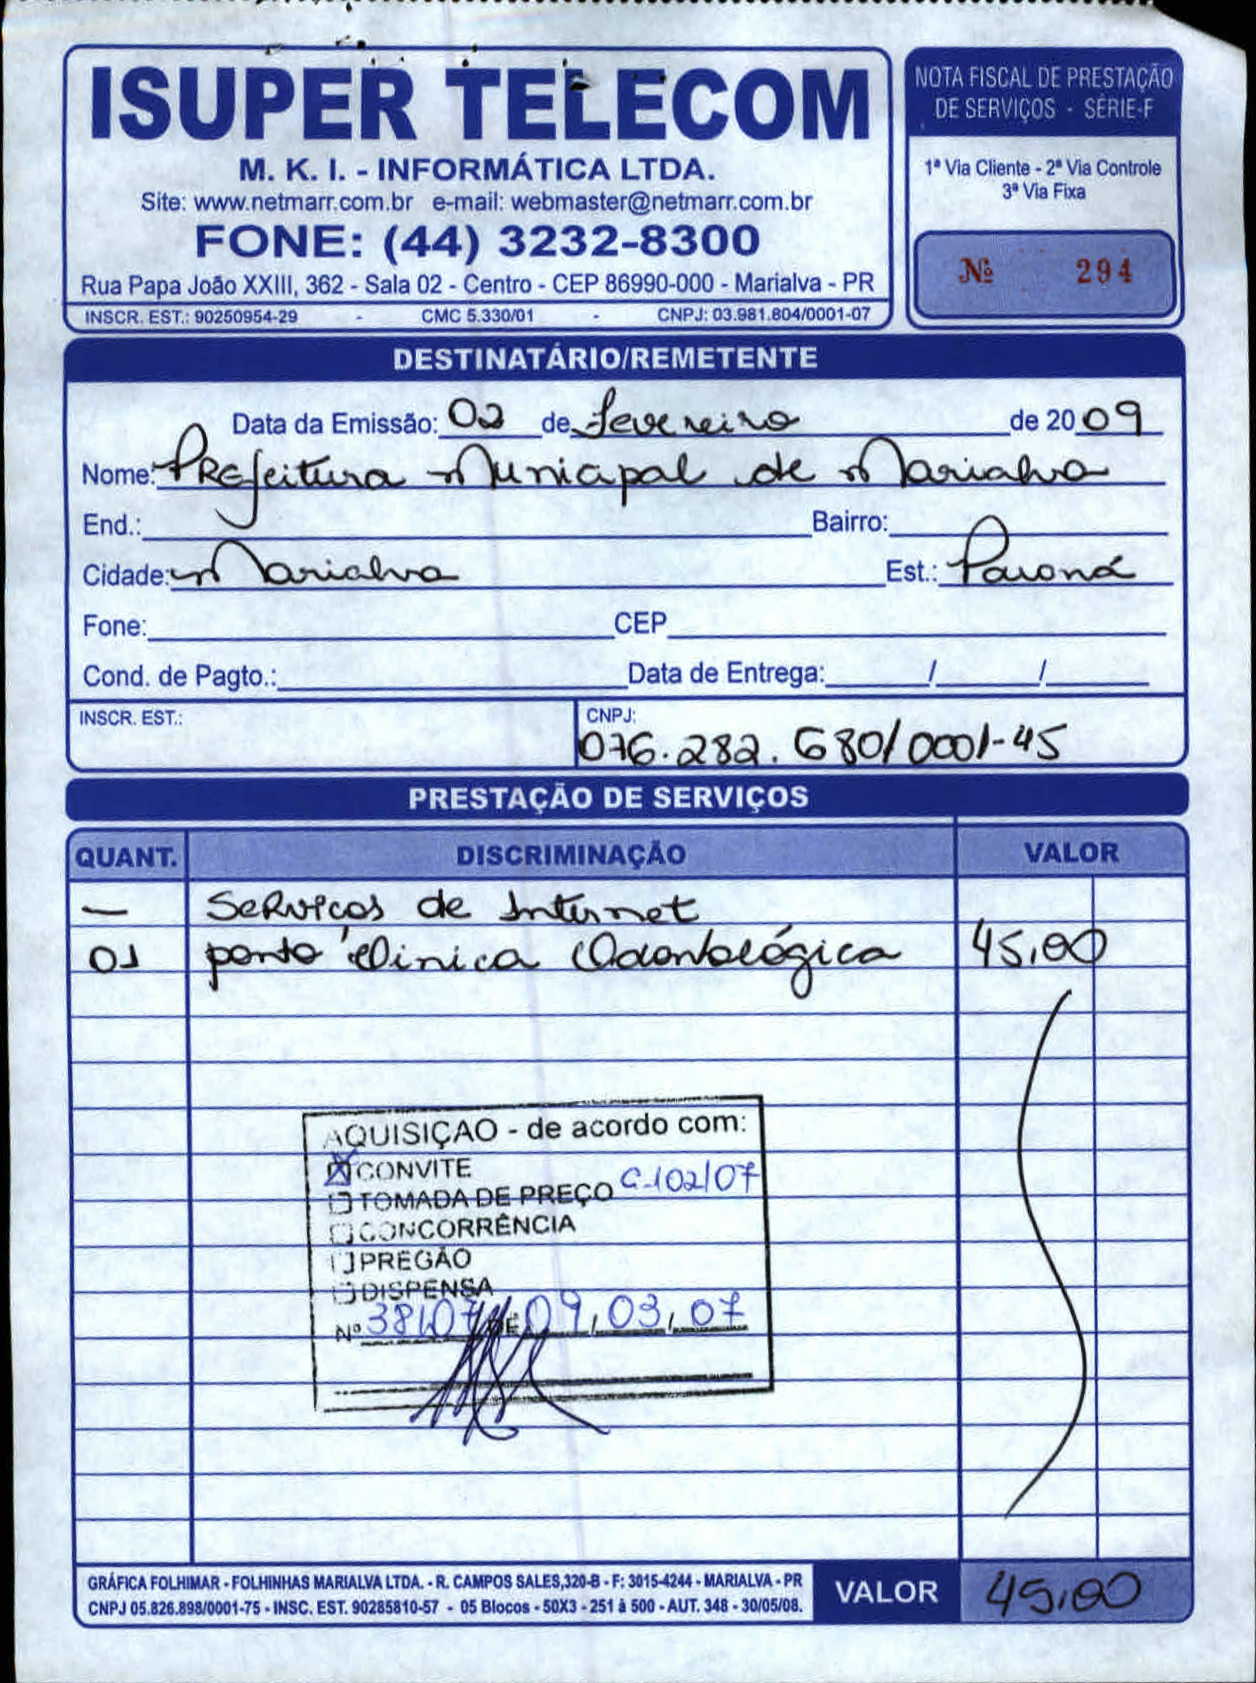 ISUPER TELECOM
M. K. I. - INFORMÁTICA LTDA.
Site: www.netmarr.com.br e-mail: webmaster@netmarr.com.br
FONE: (44) 3232-8300
Rua Papa João XXIII, 362 - Sala 02 - Centro - CEP 86990-000 - Marialva - PR
INSCR. EST.: 90250954-29 - CMC 5.330/01 - CNPJ: 03.981.804/0001-07
NOTA FISCAL DE PRESTAÇÃO
DE SERVIÇOS - SÉRIE-F
1ª Via Cliente - 2ª Via Controle
3ª Via Fixa
Nº 294
DESTINATÁRIO/REMETENTE
Data da Emissão: 02 de Fevereiro de 2009
Nome: Prefeitura Municipal de Marialva
End.: Bairro:
Cidade: Marialva Est.: Paraná
Fone: CEP
Cond. de Pagto.: Data de Entrega: / /
INSCR. EST.: CNPJ:
076.282.680/0001-45
PRESTAÇÃO DE SERVIÇOS
QUANT. DISCRIMINAÇÃO VALOR
— Serviços de Internet
01 ponto Clinica Odontológica 45,00
AQUISIÇÃO - de acordo com:
CONVITE
C-102/07
TOMADA DE PREÇO
CONCORRÊNCIA
PREGÃO
DISPENSA
Nº 38/07 DE 09/03/07
GRÁFICA FOLHIMAR - FOLHINHAS MARIALVA LTDA. - R. CAMPOS SALES,320-B - F: 3015-4244 - MARIALVA - PR
CNPJ 05.826.898/0001-75 - INSC. EST. 90285810-57 - 05 Blocos - 50X3 - 251 à 500 - AUT. 348 - 30/05/08.
VALOR 45,00